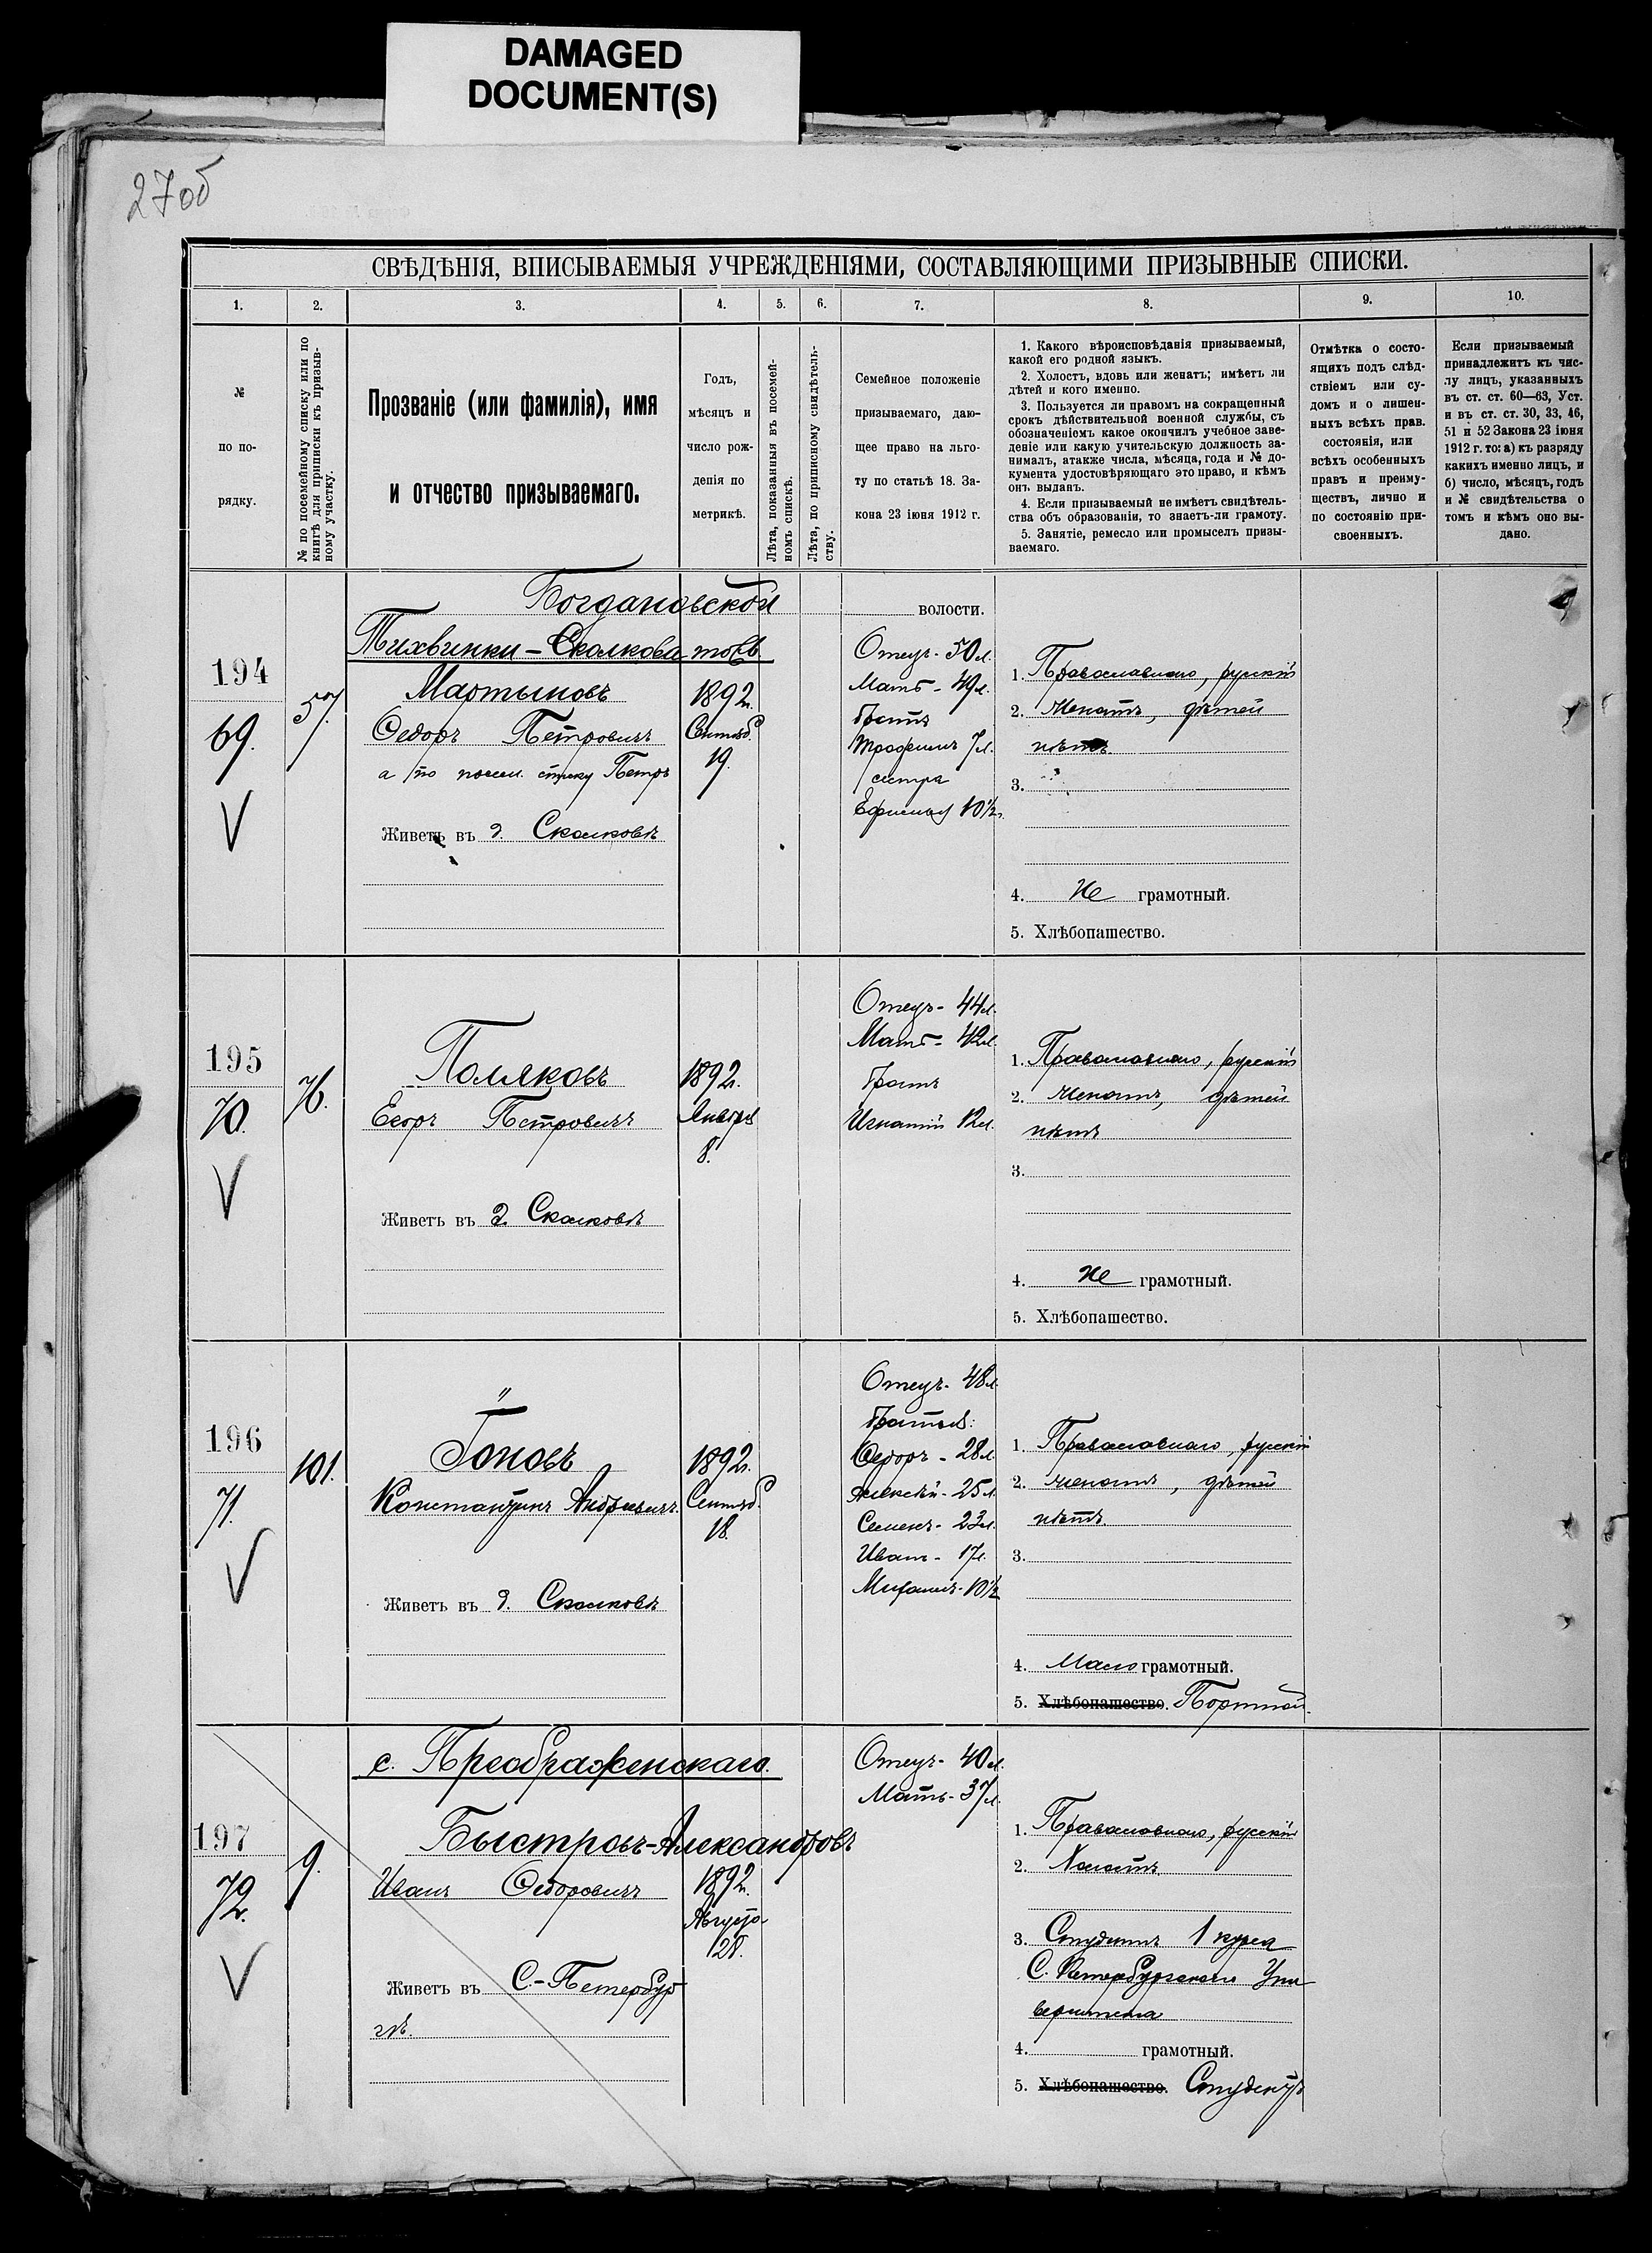 DAMAGED
DOCUMENT(S)
27об
СВѢДѢНІЯ, ВПИСЫВАЕМЫЯ УЧРЕЖДЕНІЯМИ, СОСТАВЛЯЮЩИМИ ПРИЗЫВНЫЕ СПИСКИ.
1.
2.
3.
4.
5.
6.
7.
8.
9.
10.
№
по по-
рядку.
№ по посемейному списку или по
книгѣ для приписки къ призыв-
ному участку.
Прозваніе (или фамилія), имя
и отчество призываемаго.
Годъ,
мѣсяцъ и
число рож-
денія по
метрикѣ.
Лѣта, показанныя въ посемей-
номъ спискѣ.
Лѣта, по приписному свидѣтель-
ству.
Семейное положеніе
призываемаго, даю-
щее право на льго-
ту по статьѣ 18. За-
кона 23 іюня 1912 г.
1. Какого вѣроисповѣданія призываемый,
какой его родной языкъ.
2. Холостъ, вдовъ или женатъ; имѣетъ ли
дѣтей и кого именно.
3. Пользуется ли правомъ на сокращенный
срокъ дѣйствительной военной службы, съ
обозначеніемъ какое окончилъ учебное заве-
деніе или какую учительскую должность за-
нималъ, атакже числа, мѣсяца, года и № до-
кумента удостовѣряющаго это право, и кѣмъ
онъ выданъ.
4. Если призываемый не имѣетъ свидѣтель-
ства объ образованіи, то знаетъ-ли грамоту.
5. Занятіе, ремесло или промыселъ призы-
ваемаго.
Отмѣтка о состо-
ящихъ подъ слѣд-
ствіемъ или су-
домъ и о лишен-
ныхъ всѣхъ прав.
состоянія, или
всѣхъ особенныхъ
правъ и преиму-
ществъ, лично и
по состоянію при-
своенныхъ.
Если призываемый
принадлежитъ къ чис-
лу лицъ, указанныхъ
въ ст. ст. 60—63, Уст.
и въ ст. ст. 30, 33, 46,
51 и 52 Закона 23 іюня
1912 г. то: а) къ разряду
какихъ именно лицъ, и
б) число, мѣсяцъ, годъ
и № свидѣтельства о
томъ и кѣмъ оно вы-
дано.
Богдановской волости.
Тихвинки-Скалкова тожъ
194
69.
57.
Мартыновъ
Федоръ Петровичъ
а по посем. списку Петръ
Живетъ въ д. Скалковѣ
1892г.
Сентяб.
19.
Отецъ - 50л.
Мать - 49л.
Братъ
Трофимъ 7л.
сестра
10½
1. Православнаго, русскій
2. Женатъ, дѣтей
нѣтъ.
3.
4. Не грамотный.
5. Хлѣбопашество.
195
70.
76.
Поляковъ
Егоръ Петровичъ
Живетъ въ д. Скалковѣ
1892г.
Января
8.
Отецъ - 44л.
Мать - 42л.
Братъ
Игнатій 12л.
1. Православнаго, русскій
2. Женатъ, дѣтей
нѣтъ
3.
4. Не грамотный.
5. Хлѣбопашество.
196
71.
101.
"
Гоновъ
Константинъ Андреевичъ
Живетъ въ д. Скалковѣ
1892г.
Сентяб.
18.
Отецъ - 48л.
Братья:
Федоръ - 28л.
Алексѣй - 25л.
Семенъ - 23л.
Иванъ - 17л.
10½
1. Православнаго, русскій
2. Женатъ, дѣтей
нѣтъ.
3.
4. Мало грамотный.
5. Хлѣбопашество. Портной.
с. Преображенскаго.
197
72.
9.
Быстровъ-Александровъ
Иванъ Федоровичъ
Живетъ въ С.-Петербур
гѣ.
1892г.
Августа
28.
Отецъ - 40л.
Мать - 37л.
1. Православнаго, русскій
2. Холостъ
3. Студентъ 1 курса
С. Петербургскаго Уни
верситета
4. грамотный.
5. Хлѣбопашество. Студентъ